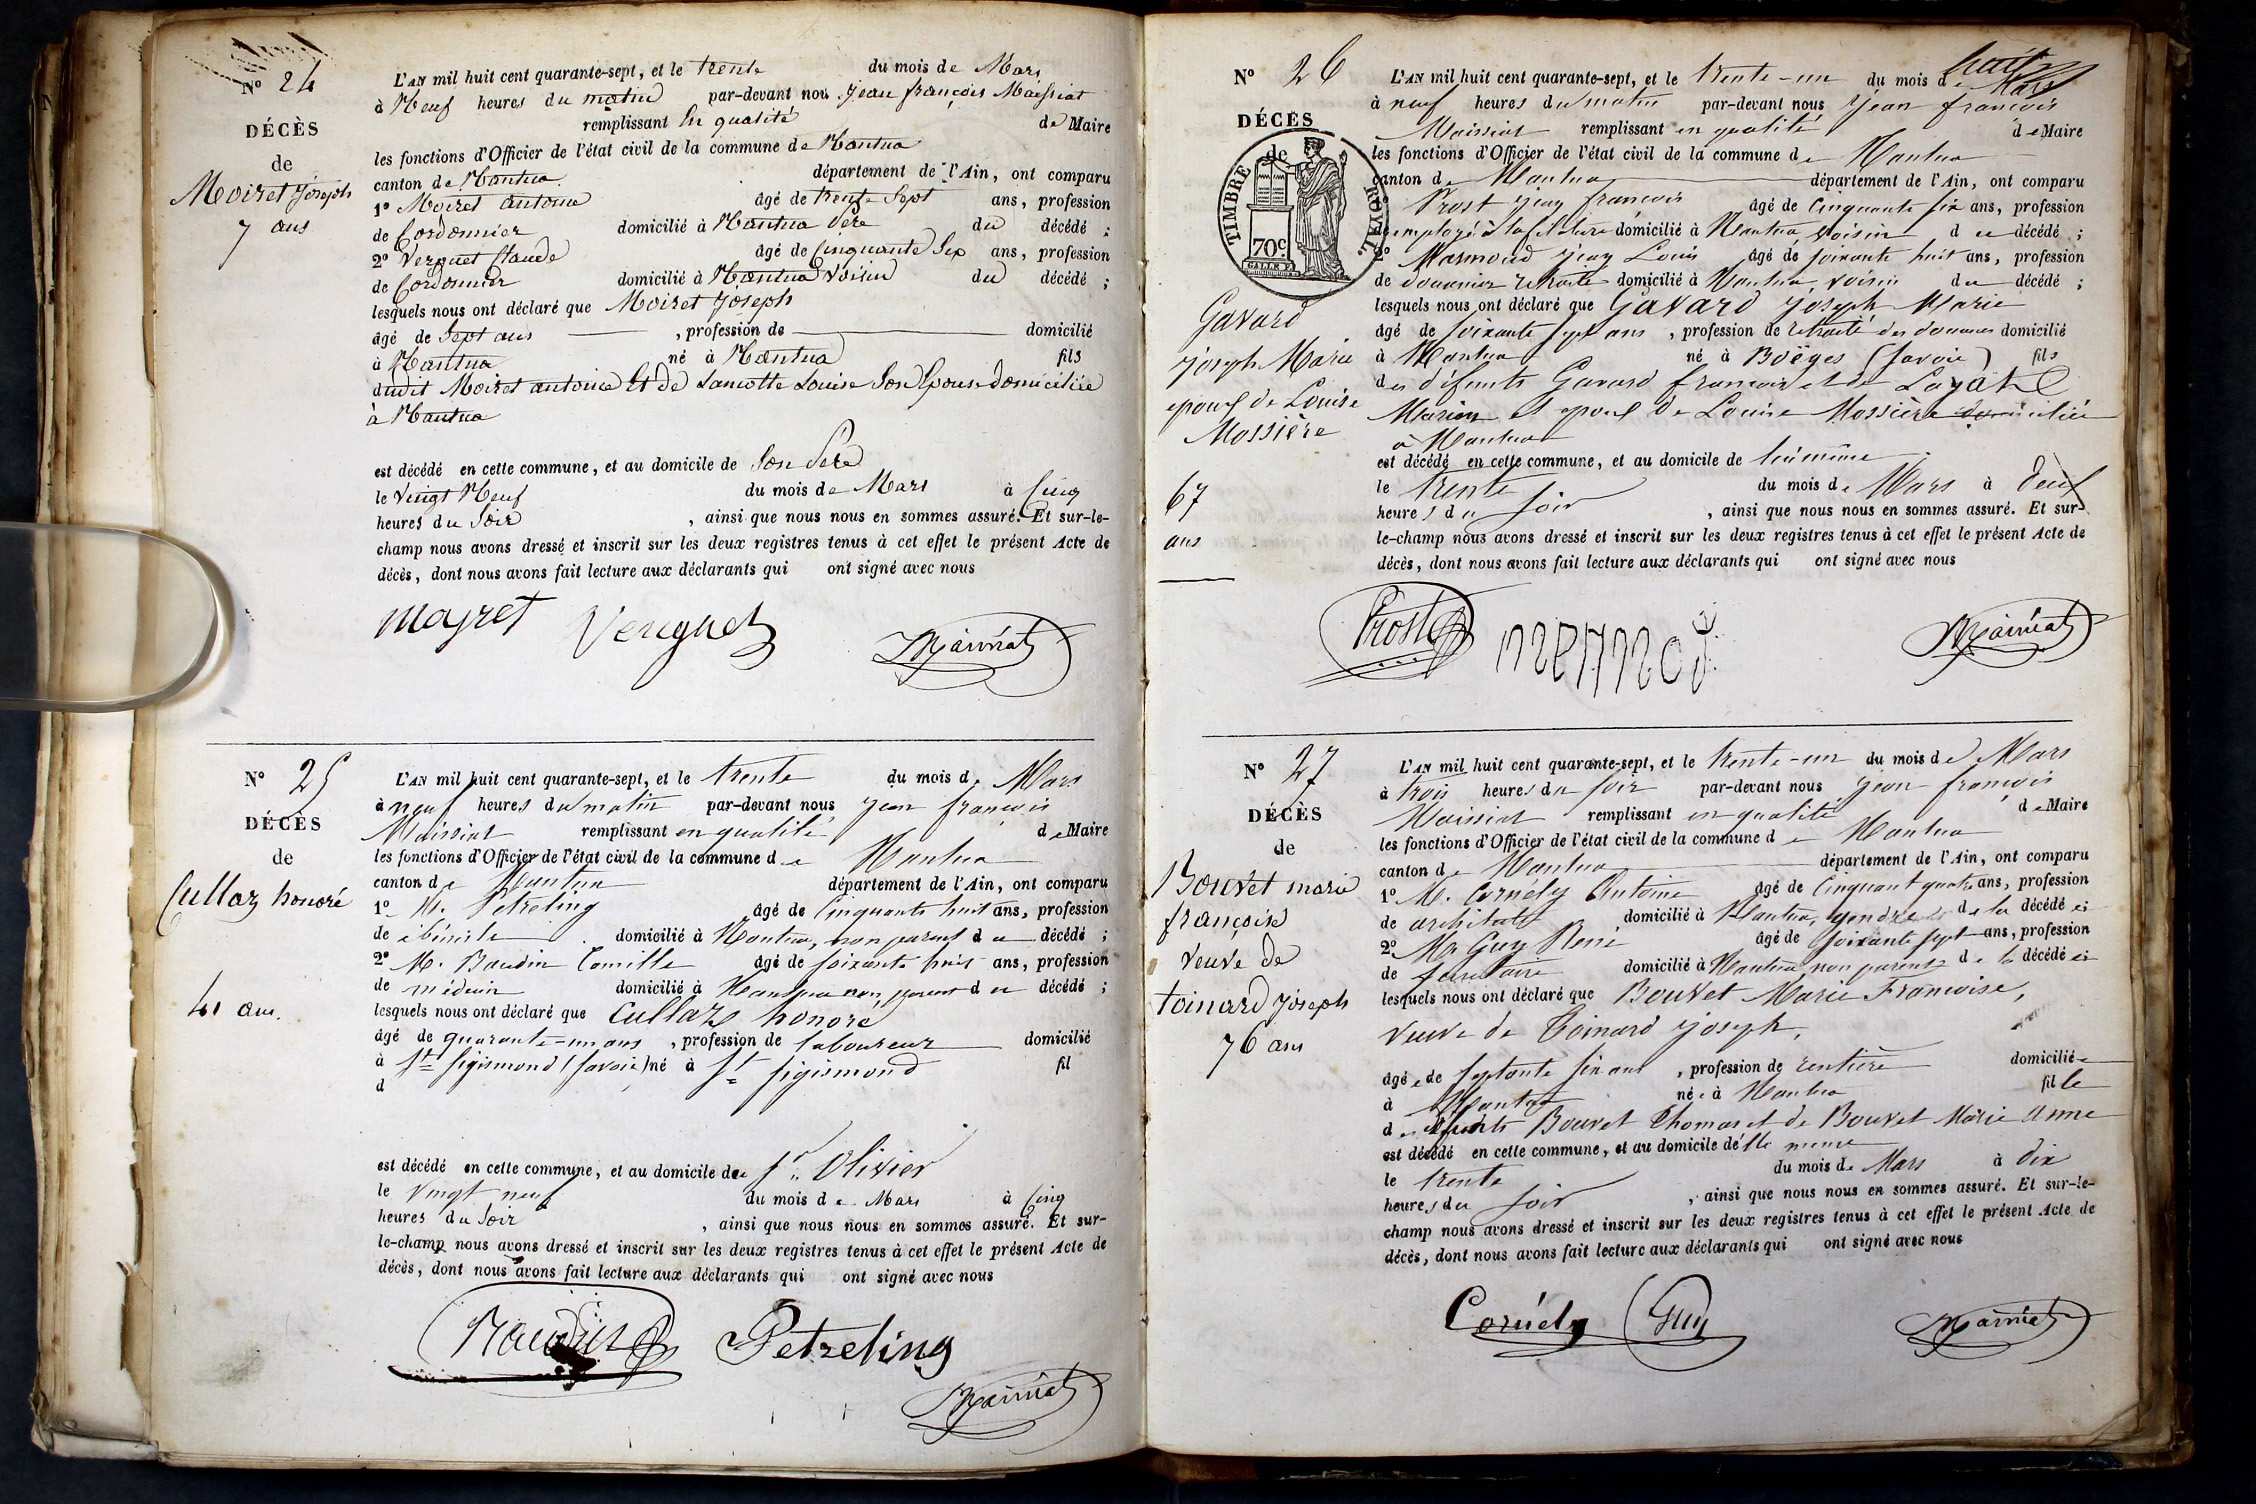 N° 24
DÉCÈS
de
Moiret Joseph
7 ans
L'AN mil huit cent quarante-sept, et le trente du mois de Mars
à Neuf heures du matin par-devant nous Jean françois Maissiat
remplissant En qualité de Maire
les fonctions d'Officier de l'état civil de la commune de Nantua
canton de Nantua département de l'Ain, ont comparu
1° Moiret antoine âgé de trente Sept ans, profession
de Cordonnier domicilié à Nantua Père du décédé ;
2° Verguet Claude âgé de Cinquante Six ans, profession
de Cordonnier domicilié à Nantua Voisin du décédé ;
lesquels nous ont déclaré que Moiret Joseph
âgé de Sept ans , profession de domicilié
à Nantua né à Nantua fils
dudit Moiret antoine Et de Lamotte Louise Son Epouse domiciliée
à Nantua
est décédé en cette commune, et au domicile de Son Père
le Vingt Neuf du mois de Mars à Cinq
heures du Soir , ainsi que nous nous en sommes assuré. Et sur-le-
champ nous avons dressé et inscrit sur les deux registres tenus à cet effet le présent Acte de
décès, dont nous avons fait lecture aux déclarants qui ont signé avec nous
Moyret Verguet Maissiat
N° 25
DÉCÈS
de
Cullaz honoré
41 ans.
L'AN mil huit cent quarante-sept, et le trente du mois de Mars
à neuf heures du matin par-devant nous Jean françois
Maissiat remplissant en qualité de Maire
les fonctions d'Officier de l'état civil de la commune de Nantua
canton de Nantua département de l'Ain, ont comparu
1° M. Petreling âgé de Cinquante huit ans, profession
de ébéniste domicilié à Nantua, non parent du décédé ;
2° M. Baudin Camille âgé de soixante huit ans, profession
de médecin domicilié à Nantua non parent du décédé ;
lesquels nous ont déclaré que Cullaz honoré
âgé de quarante-un ans , profession de laboureur domicilié
à St Sigismond (Savoie) né à St Sigismond fil
d
est décédé en cette commune, et au domicile de Sr Olivier
le Vingt neuf du mois de Mars à Cinq
heures du Soir , ainsi que nous nous en sommes assuré. Et sur-
le-champ nous avons dressé et inscrit sur les deux registres tenus à cet effet le présent Acte de
décès, dont nous avons fait lecture aux déclarants qui ont signé avec nous
Baudin Petreling
Maissiat
N° 26
DÉCÈS
de
TIMBRE ROYAL
70c
Gavard
Joseph Marie
epoux de Louise
Mossière
67
ans
L'AN mil huit cent quarante-sept, et le trente-un du mois de Mars
à neuf heures du matin par-devant nous Jean françois
Maissiat remplissant en qualité de Maire
les fonctions d'Officier de l'état civil de la commune de Nantua
canton de Nantua département de l'Ain, ont comparu
1° Prost Jean françois âgé de Cinquante six ans, profession
employé à la filature domicilié à Nantua voisin du décédé ;
2° Marmoud Jean Louis âgé de soixante huit ans, profession
de douanier retraité domicilié à Nantua voisin du décédé ;
lesquels nous ont déclaré que Gavard Joseph Marie
âgé de soixante sept ans , profession de retraité des douanes domicilié
à Nantua né à Boëges (Savoie) fils
des défunts Gavard françois et de
Marion et epoux de Louise Mossière domiciliée
à Nantua
est décédé en cette commune, et au domicile de lui même
le trente du mois de Mars à deux
heures du soir , ainsi que nous nous en sommes assuré. Et sur-
le-champ nous avons dressé et inscrit sur les deux registres tenus à cet effet le présent Acte de
décès, dont nous avons fait lecture aux déclarants qui ont signé avec nous
Prost Maissiat
N° 27
DÉCÈS
de
Bouvet marie
françoise
veuve de
toinard joseph
76 ans
L'AN mil huit cent quarante-sept, et le trente-un du mois de Mars
à trois heures du soir par-devant nous Jean françois
Maissiat remplissant en qualité de Maire
les fonctions d'Officier de l'état civil de la commune de Nantua
canton de Nantua département de l'Ain, ont comparu
1° M. Cornély Antoine âgé de Cinquante quatre ans, profession
de architecte domicilié à Nantua, gendre de la décédée
2° Mr Guy René âgé de soixante sept ans, profession
de domicilié à Nantua non parent de la décédée
lesquels nous ont déclaré que Bouvet Marie Francoise,
veuve de Toinard Joseph,
âgée de septante six ans , profession de rentière domiciliée
à Nantua née à Nantua fille
des défunts Bouvet Thomas et de Bouvet Marie Anne
est décédé en cette commune, et au domicile d'elle même
le trente du mois de Mars à dix
heures du soir , ainsi que nous nous en sommes assuré. Et sur-le-
champ nous avons dressé et inscrit sur les deux registres tenus à cet effet le présent Acte de
décès, dont nous avons fait lecture aux déclarants qui ont signé avec nous
Cornély Guy Maissiat